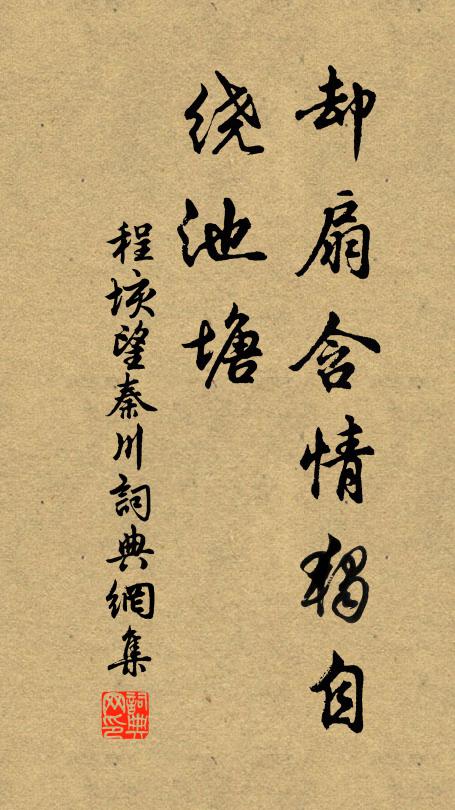 却扇含情独自
绕池塘
程垓望秦川詞典網集
詞典网印